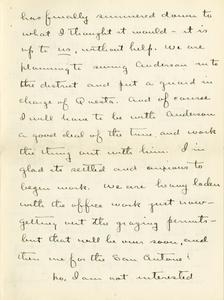 has finally simmered down to
what I thought it would - it is
up to us, without help. We are
planning to swing Anderson into
the district and put a guard in
charge of Questa. And of course
I will have to be with Anderson
a good deal of the time, and work
the thing out with him. I'm
glad its settled and anxious to
begin work. We are heavy laden
with the office work just now -
getting out the grazing permits -
but that will be over soon, and
then me for the San Antone!
No, I am not interested